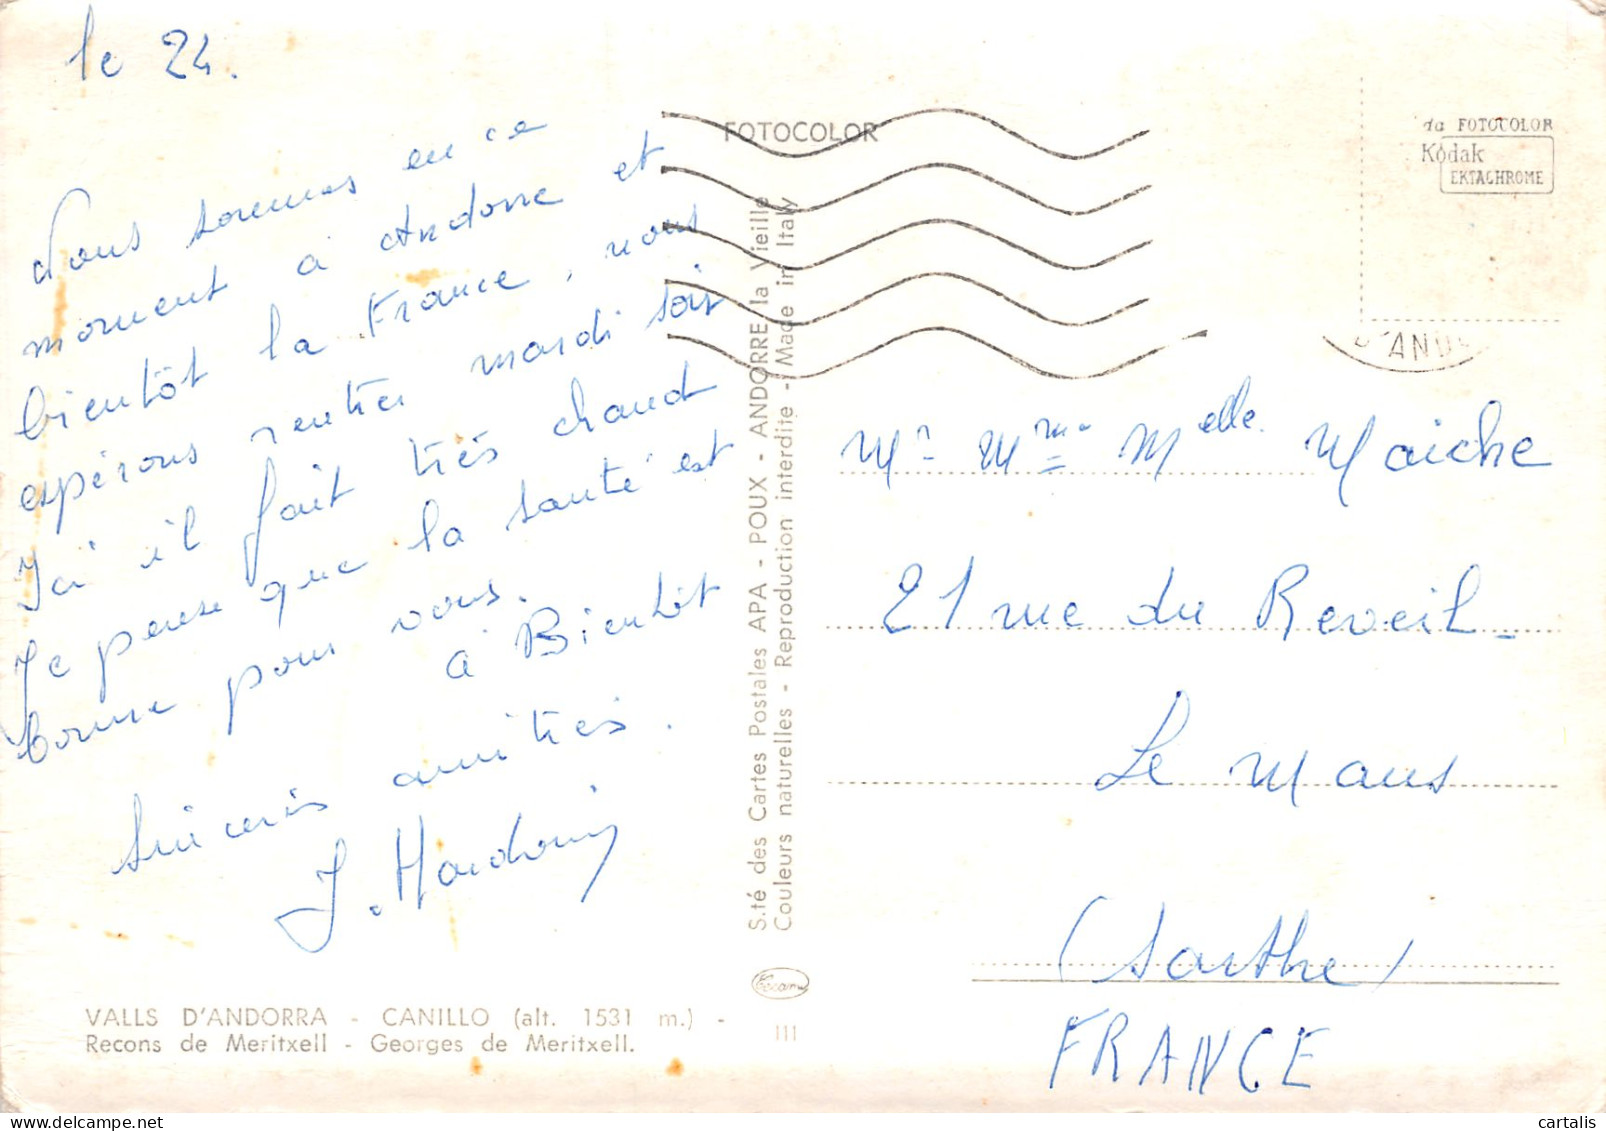 le 24.
Nous sommes en ce
moment à Andorre et
bientôt la France, nous
espérons rentrer mardi soir
Ici il fait très chaud
Je pense que la santé est
bonne pour vous.
à Bientôt
Sincères amitiés.
VALLS D'ANDORRA - CANILLO (alt. 1531 m.) -
Recons de Meritxell - Georges de Meritxell.
FOTOCOLOR
S.té des Cartes Postales APA - POUX - ANDORRE la Vieille
Couleurs naturelles - Reproduction interdite - Made in Italy
III
da FOTOCOLOR
Kodak
EKTACHROME
Mr Mme Melle Maiche
21 rue du Reveil
Le Mans
(Sarthe)
FRANCE
cartalis